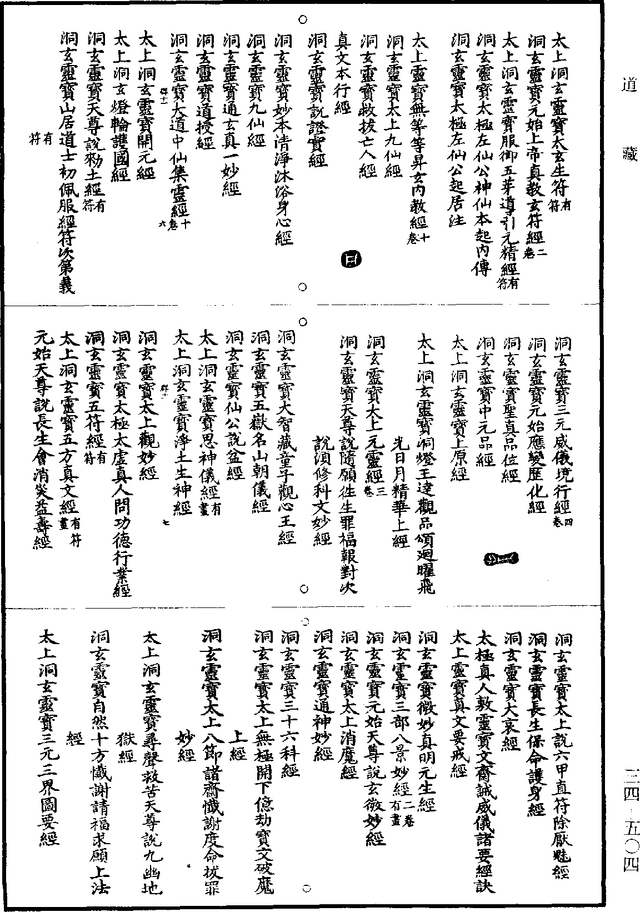 道藏
太上洞玄靈寶太玄生符有符
洞玄靈寶元始上帝真教玄符經二卷
太上洞玄靈寶服御五芽導引元精經有符
洞玄靈寶太極左仙公神仙本起內傳
洞玄靈寶太極左仙公起居注
太上靈寶無等等昇玄內教經十卷
洞玄靈寶太上九仙經
洞玄靈寶救拔亡人經
真文本行經
洞玄靈寶說證實經
洞玄靈寶妙本清淨沐浴身心經
洞玄靈寶九仙經
洞玄靈寶通玄真一妙經
洞玄靈寶道授經
洞玄靈寶大道中仙集靈經十卷
六
太上洞玄靈寶開元經
太上洞玄燈輪護國經
洞玄靈寶天尊說勑土經有符
洞玄靈寶山居道士初佩服經符次第義有符
洞玄靈寶三元威儀境行經四卷
洞玄靈寶元始應變歷化經
洞玄靈寶聖真品位經
洞玄靈寶中元品經
太上洞玄靈寶上原經
太上洞玄靈寶洞燈王達觀品頌迴曜飛
光日月精華上經
洞玄靈寶太上元靈經三卷
洞玄靈寶天尊說隨願往生罪福報對次
說預修科文妙經
洞玄靈寶大智藏童子觀心王經
洞玄靈寶五嶽名山朝儀經
洞玄靈寶仙公說盆經
太上洞玄靈寶思神儀經有畫
太上洞玄靈寶淨土生神經
七
洞玄靈寶太上觀妙經
洞玄靈寶太極太虛真人問功德行業經
洞玄靈寶五符經有符
太上洞玄靈寶五方真文經有符畫
元始天尊說長生會消災益壽經
洞玄靈寶太上說六甲直符除厭魅經
洞玄靈寶長生保命護身經
洞玄靈寶大哀經
太極真人敷靈寶文齋誡威儀諸要經訣
太上靈寶真文要戒經
洞玄靈寶微妙真明元生經
洞玄靈寶三部八景妙經二卷有畫
洞玄靈寶元始天尊說玄微妙經
洞玄靈寶太上消魔經
洞玄靈寶通神妙經
洞玄靈寶三十六科經
洞玄靈寶太上無極開下億劫寶文破魔
上經
洞玄靈寶太上八節諸齋懺謝度命拔罪
妙經
太上洞玄靈寶尋聲救苦天尊說九幽地
獄經
洞玄靈寶自然十方懺謝請福求願上法
經
太上洞玄靈寶三元三界圖要經
三四－五〇四